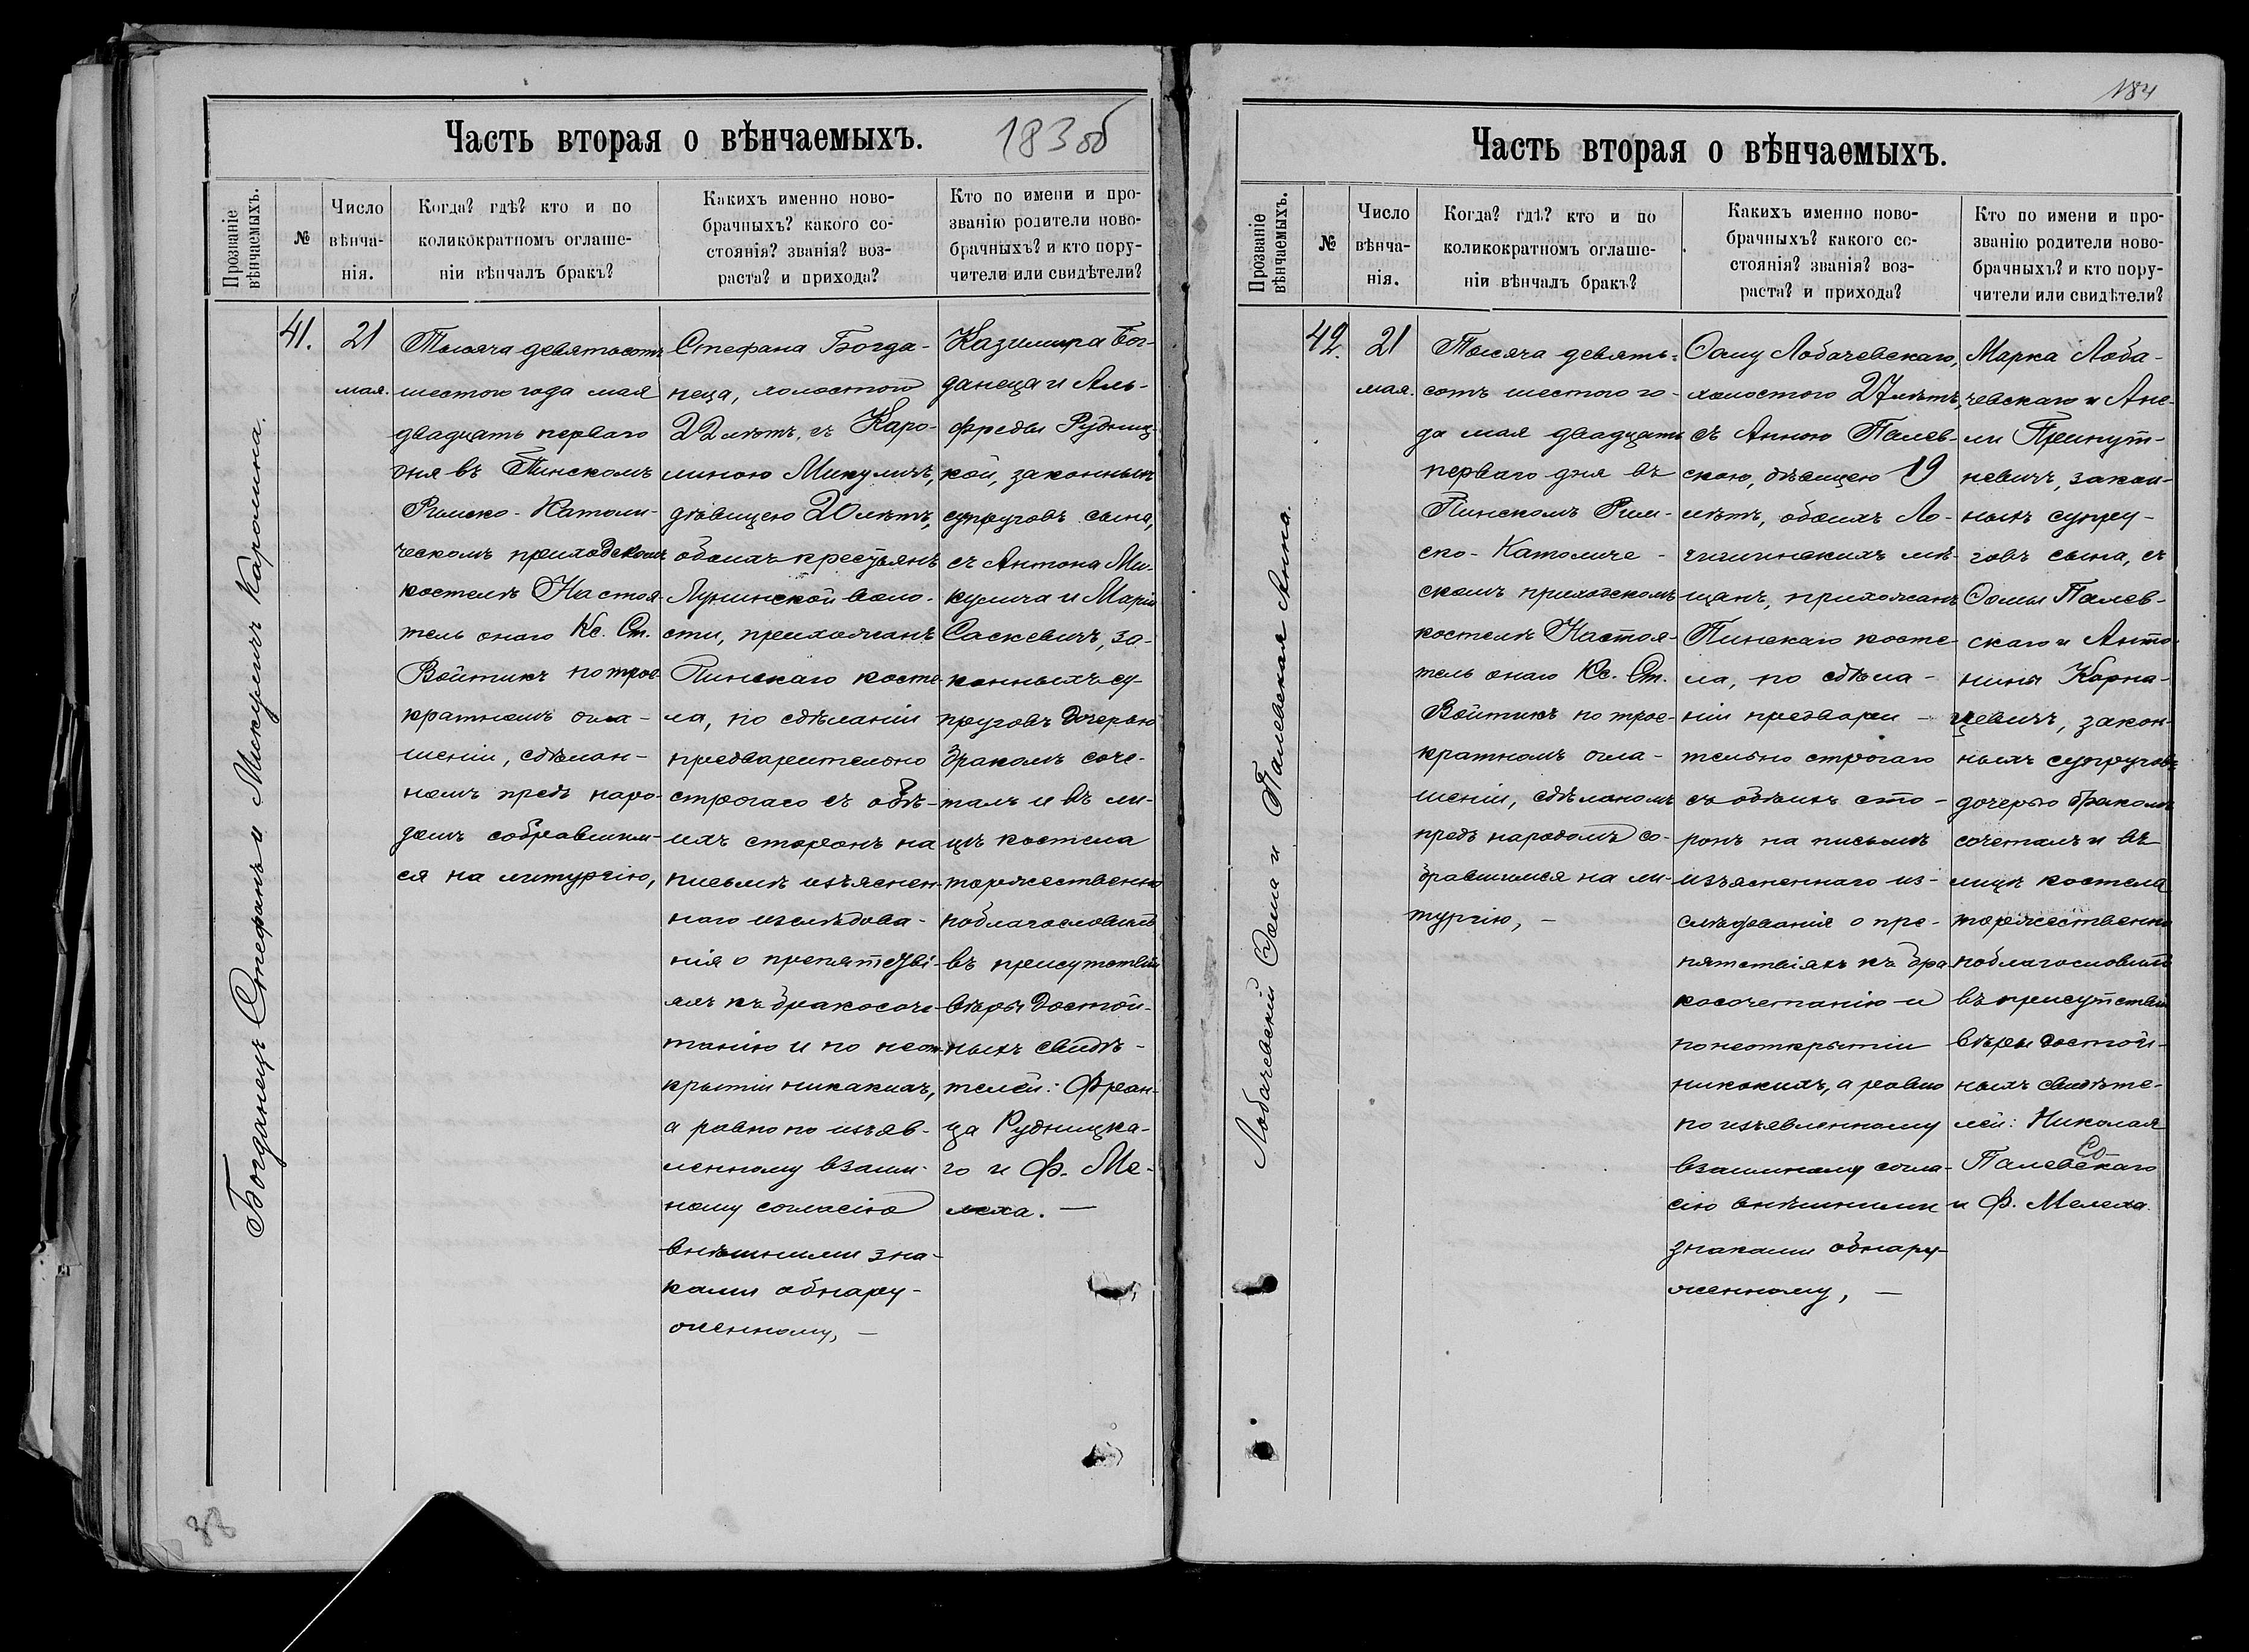 Часть вторая о вѣнчаемыхъ.
183 об
Прозваніе
вѣнчаемыхъ.
№
Число
вѣнча-
нія.
Когда? гдѣ? кто и по
коликократномъ оглаше-
ніи вѣнчалъ бракъ?
Какихъ именно ново-
брачныхъ? какого со-
стоянія? званія? воз-
раста? и прихода?
Кто по имени и про-
званію родители ново-
брачныхъ? и кто пору-
чители или свидѣтели?
Богданецъ Стефанъ и Микуличъ Каролина.
41.
21
мая.
Тысяча девятьсотъ
шестого года мая
двадцать перваго
дня въ Пинскомъ
Римско-Католи-
ческомъ приходскомъ
костелѣ Настоя-
тель онаго Кс. Ст.
Войтикъ по трое-
кратномъ огла-
шеніи, сдѣлан-
номъ предъ наро-
домъ собравшим-
ся на литургію,
Стефана Богда-
неца, холостого
22 лѣтъ, съ Каро-
линою Микуличъ,
дѣвицею 20 лѣтъ,
обоихъ крестьянъ
Лунинской воло-
сти, прихожанъ
Пинскаго косте-
ла, по сдѣланіи
предварительно
строгаго съ обѣ-
ихъ сторонъ на
письмѣ изъяснен-
наго изслѣдова-
нія о препятстві-
яхъ къ бракосоче-
танію и по неот-
крытіи никакихъ,
а равно по изъяв-
ленному взаим-
ному согласію
внѣшними зна-
ками обнару-
женному, —
Казимира Бог-
данеца и Аль-
фреды Рудниц-
кой, законныхъ
супруговъ сына,
съ Антона Ми-
кулича и Маріи
Саскевичъ, за-
конныхъ су-
пруговъ дочерью
бракомъ соче-
талъ и въ ли-
цѣ костела
торжественно
поблагословилъ
въ присутствіи
вѣры достой-
ныхъ свидѣ-
телей: Фран-
ца Рудницка-
го и Ф. Ме-
леха. —
38
184
Часть вторая о вѣнчаемыхъ.
Прозваніе
вѣнчаемыхъ.
№
Число
вѣнча-
нія.
Когда? гдѣ? кто и по
коликократномъ оглаше-
ніи вѣнчалъ бракъ?
Какихъ именно ново-
брачныхъ? какого со-
стоянія? званія? воз-
раста? и прихода?
Кто по имени и про-
званію родители ново-
брачныхъ? и кто пору-
чители или свидѣтели?
Лобачевскій Ѳома и Палевская Анна.
42.
21
мая.
Тысяча девять-
сотъ шестого го-
да мая двадцать
перваго дня въ
Пинскомъ Рим-
ско-Католиче-
скомъ приходскомъ
костелѣ Настоя-
тель онаго Кс. Ст.
Войтикъ по трое-
кратномъ огла-
шеніи, сдѣланомъ
предъ народомъ со-
бравшимся на ли-
тургію, —
Ѳому Лобачевскаго,
холостого 27 лѣтъ,
съ Анною Палев-
скою, дѣвицею 19
лѣтъ, обоихъ Ло-
гишинскихъ мѣ-
щанъ, прихожанъ
Пинскаго косте-
ла, по сдѣла-
ніи предвари-
тельно строгаго
съ обѣихъ сто-
ронъ на письмѣ
изъясненнаго из-
слѣдованія о пре-
пятствіяхъ къ бра-
косочетанію и
по неоткрытіи
никакихъ, а равно
по изъявленному
взаимному согла-
сію внѣшними
знаками обнару-
женному, —
Марка Лоба-
чевскаго и Ане-
ли
невичъ, закон-
ныхъ супру-
говъ сына, съ
Ѳомы Палев-
скаго и Анто-
нины Карна-
цевичъ, закон-
ныхъ супруговъ
дочерью бракомъ
сочеталъ и въ
лицѣ костела
торжественно
поблагословилъ
въ присутствіи
вѣры достой-
ныхъ свидѣте-
лей: Николая
Палевскаго
и Ф. Мелеха.